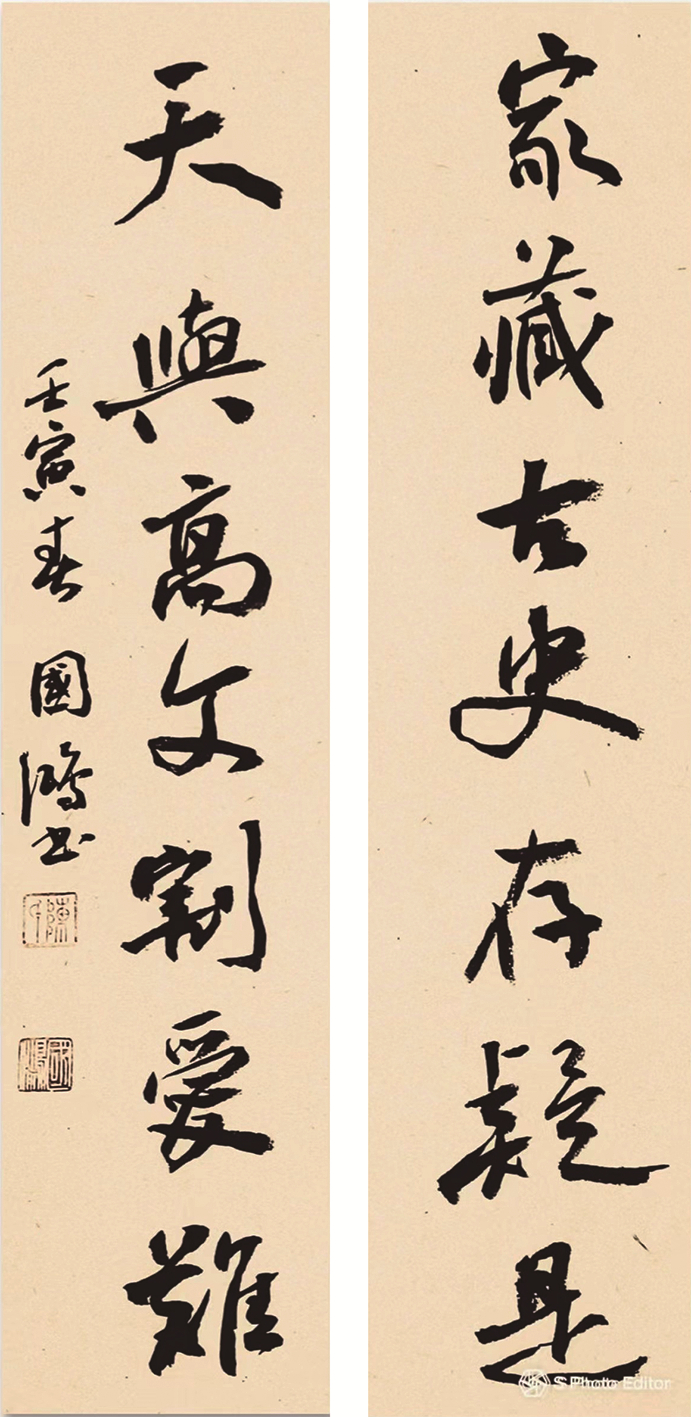 家藏古史存疑是
天與高文割愛難
壬寅春 國鴻書
陳印
國鴻
S Photo Editor